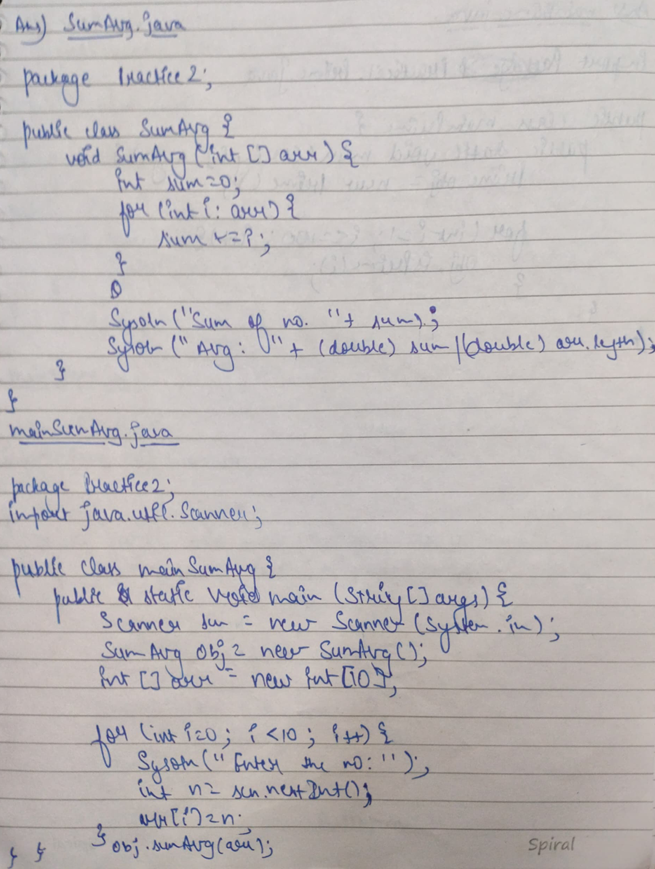 Ans) SumAvg.java
package Practice2;
public class SumAvg {
void SumAvg (int [] arr) {
int sum=0;
for (int i: arr) {
sum += i;
}
Sysoln ("Sum of no. "+ sum);
Sysoln (" Avg: "+ (double) sum /(double) arr.length);
}
}
mainSumAvg.java
package Practice2;
import java.util.Scanner;
public class mainSumAvg {
public static void main (String [] args) {
Scanner scn = new Scanner (System.in);
SumAvg obj = new SumAvg();
int [] arr = new int [10];
for (int i=0; i<10; i++) {
Sysoln (" Enter the no: ");
int n= scn.nextInt();
arr[i]=n;
} obj.sumAvg(arr);
} }
Spiral